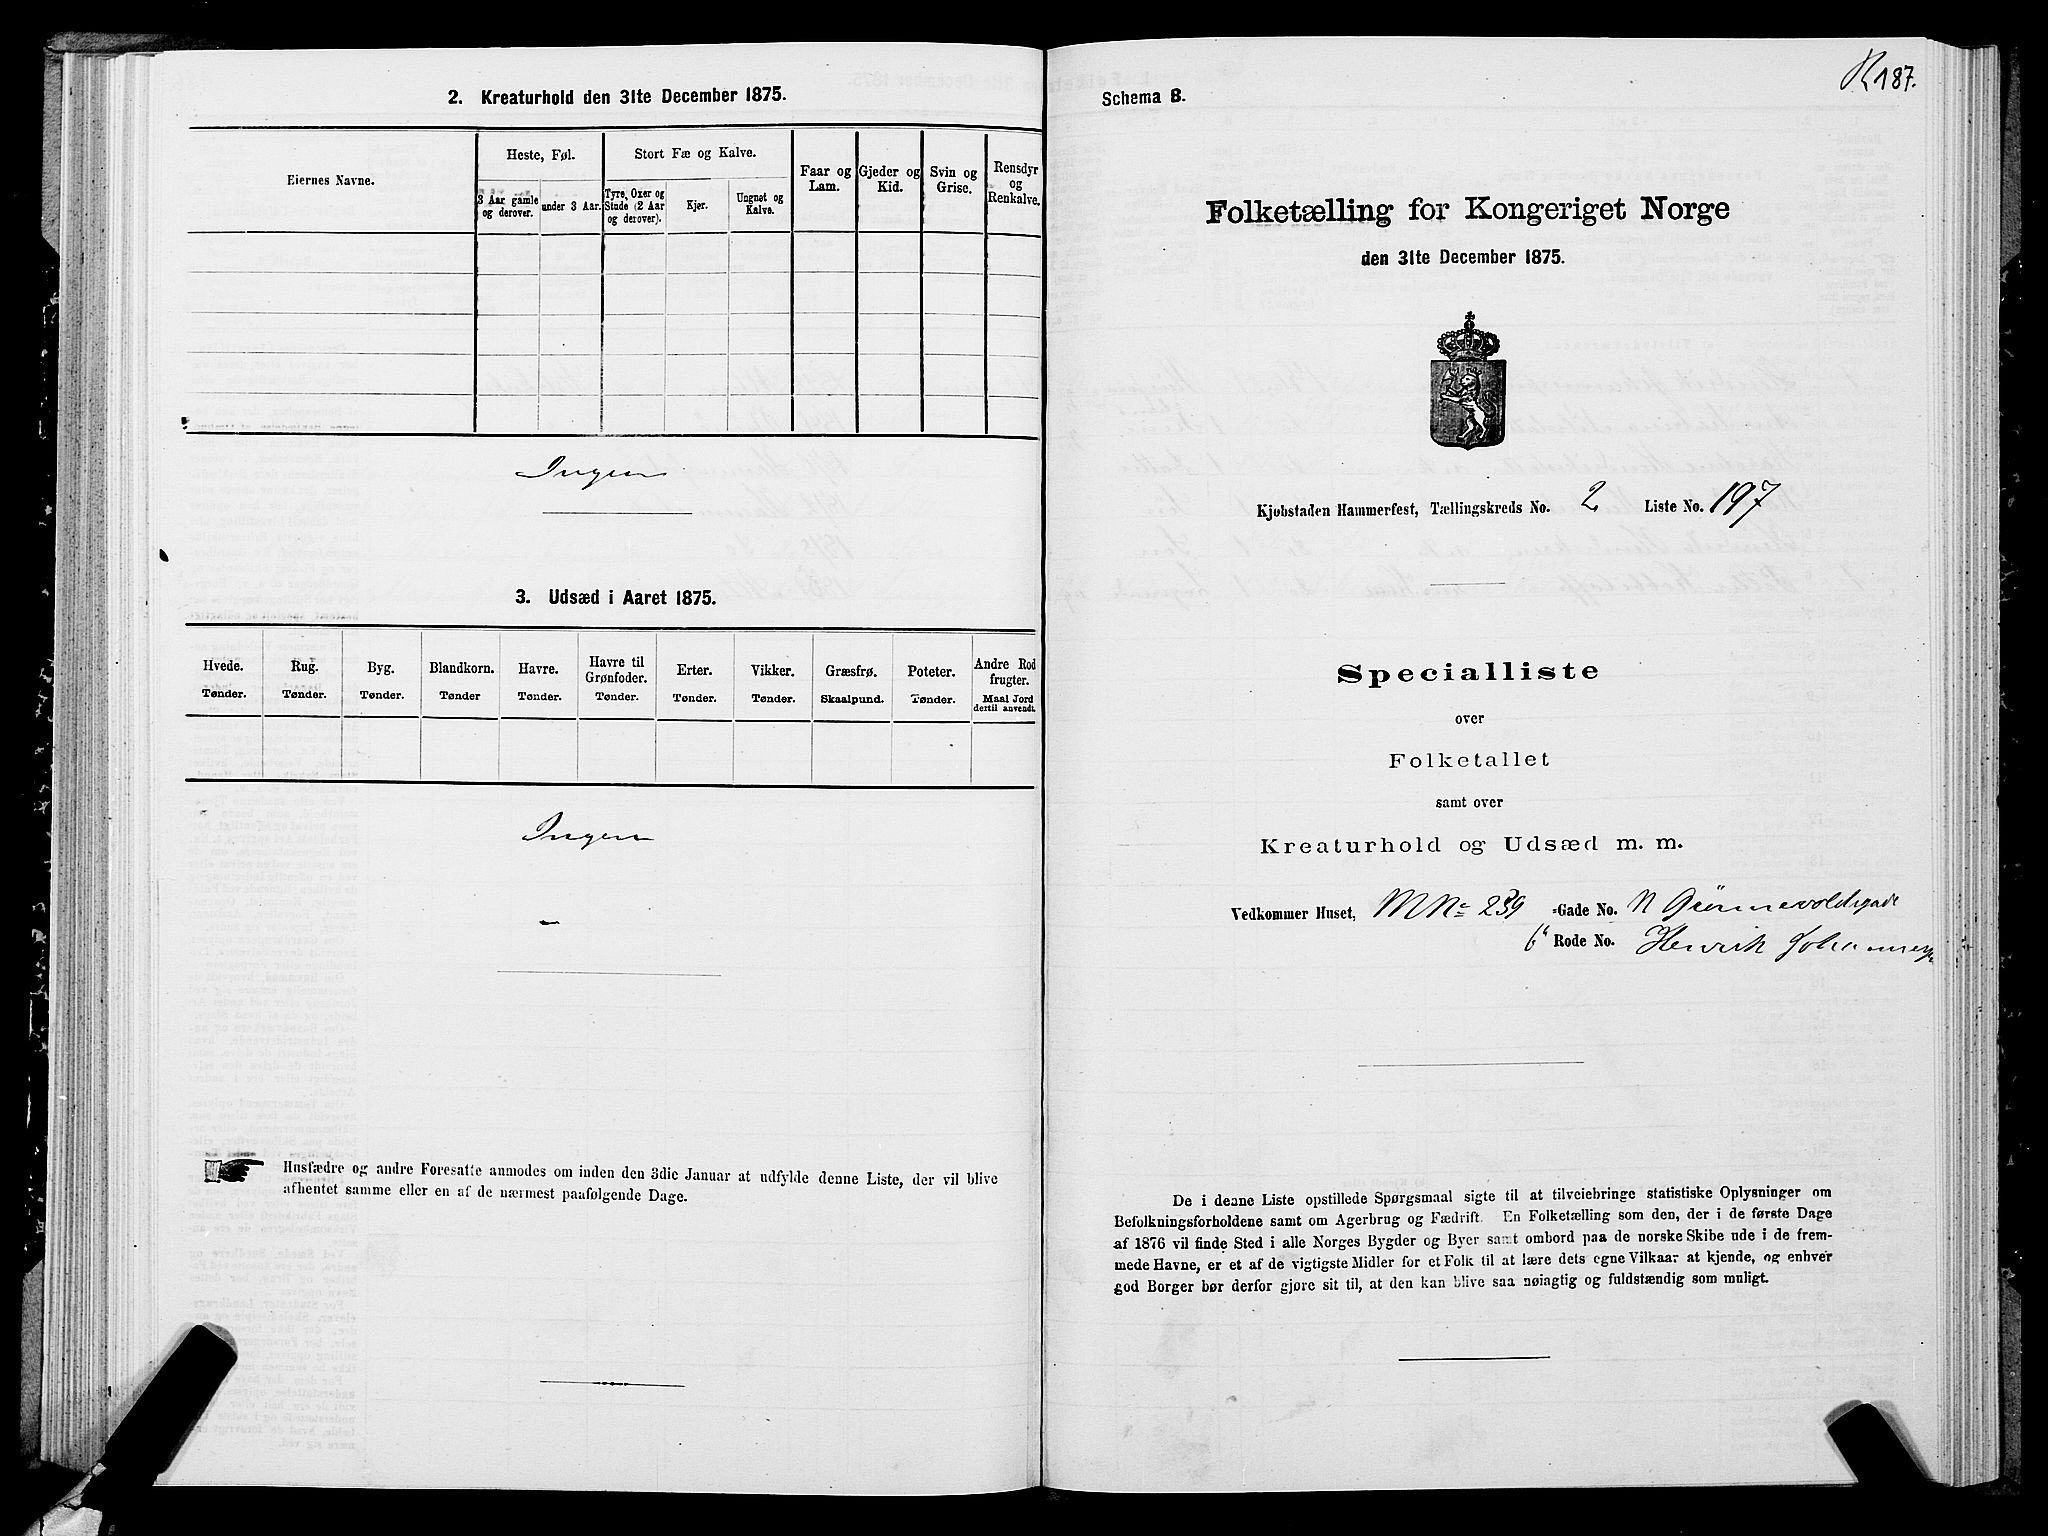 2. Kreaturhold den 31te December 1875.
Eiernes Navne.
Heste, Føl.
Stort Fæ og Kalve.
Faar og Lam.
Gjeder og Kid.
Svin og Grise.
Rensdyr og Renkalve.
3 Aar gamle og derover.
under 3 Aar.
Tyre, Oxer og Stude (2 Aar og derover).
Kjer.
Ungnøt og Kalve.
Ingen
3. Udsæd i Aaret 1875.
Hvede. Rug. Byg. Blandkorn. Havre. Havre til Grønfoder. Erter. Vikker. Græsfrø. Poteter. Andre Rod frugter.
Tønder. Tønder. Tønder. Tønder Tønder. Tønder. Tønder. Tønder. Skaalpund. Tønder. Maal Jord dertil anvendt.
Ingen
Husfædre og andre Foresatte anmodes om inden den 3die Januar at udfylde denne Liste, der vil blive
afhentet samme eller en af de nærmest paafølgende Dage.
187.
Schema B.
Folketælling for Kongeriget Norge
den 31te December 1875.
Kjøbstaden Hammerfest, Tællingskreds No. 2 Liste No. 197
Specialliste
over
Folketallet
samt over
Kreaturhold og Udsæd m. m.
Vedkommer Huset, MNr 239 -Gade No. N Grønnevoldsgade
6 Rode No. Henrik Johannesen
De i denne Liste opstillede Spørgsmaal sigte til at tilveiebringe statistiske Oplysninger om
Befolkningsforholdene samt om Agerbrug og Fædrift. En Folketælling som den, der i de første Dage
af 1876 vil finde Sted i alle Norges Bygder og Byer samt ombord paa de norske Skibe ude i de frem-
mede Havne, er et af de vigtigste Midler for et Folk til at lære dets egne Vilkaar at kjende, og enhver
god Borger bør derfor gjøre sit til, at den kan blive saa nøiagtig og fuldstændig som muligt.